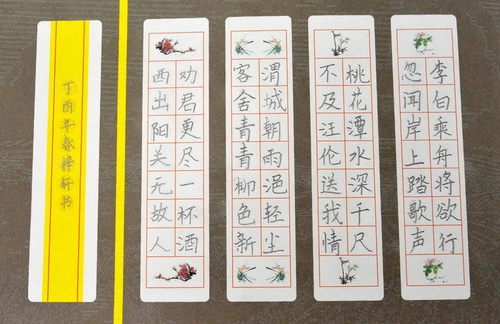 李白乘舟将欲行
忽闻岸上踏歌声
桃花潭水深千尺
不及汪伦送我情
渭城朝雨浥轻尘
客舍青青柳色新
劝君更尽一杯酒
西出阳关无故人
丁酉年春梓轩书